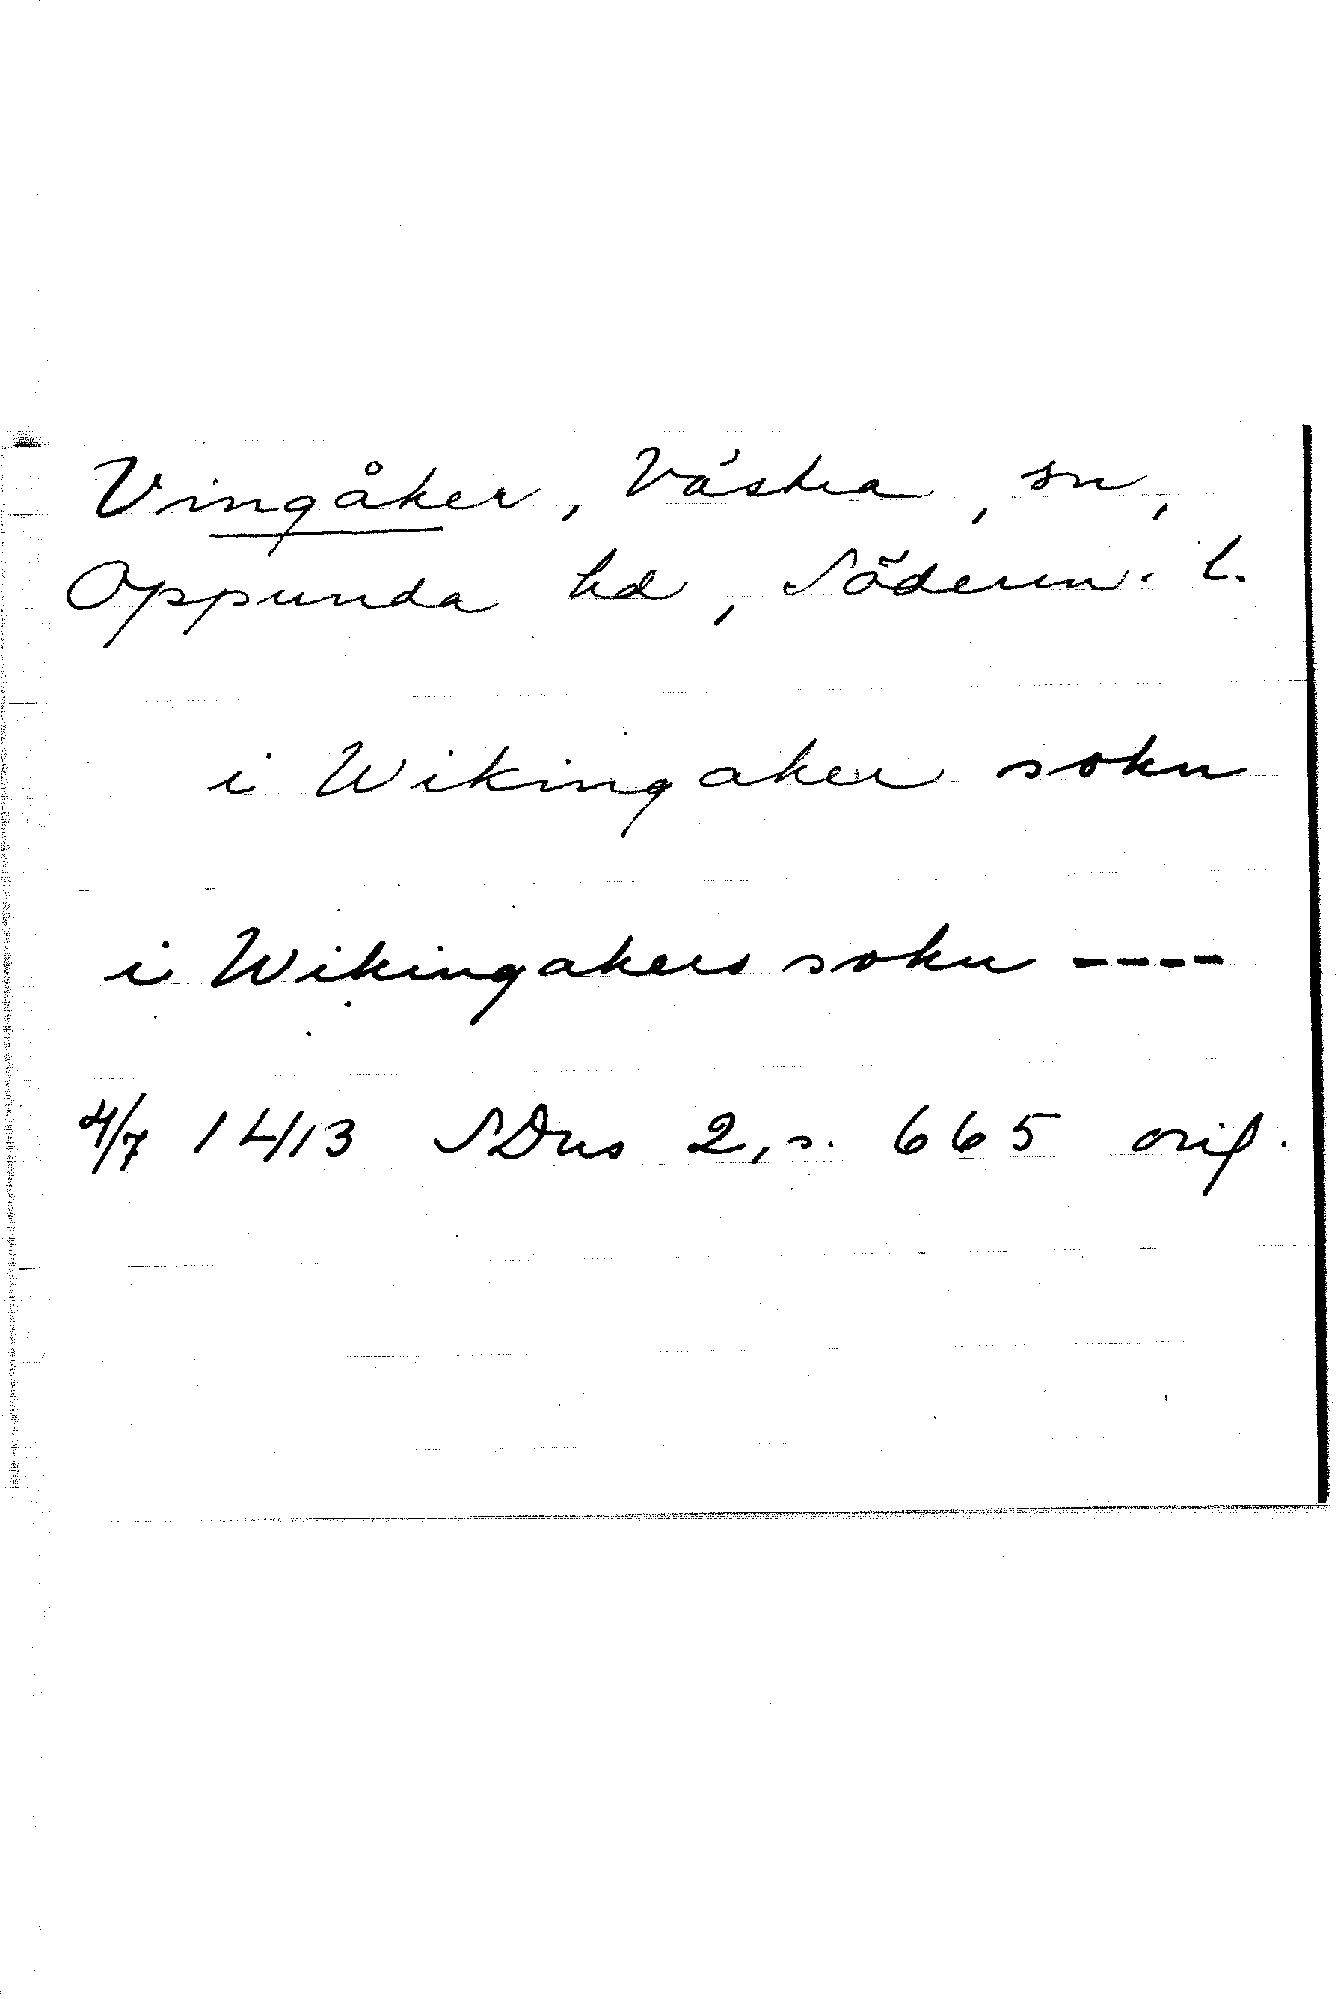 Vingåker, Västra, sn,
Oppunda hd, Söderm. l.
i Wikingaker sokn
i Wikingakers sokn ----
4/7 1413 SDns 2, s. 665 orig.